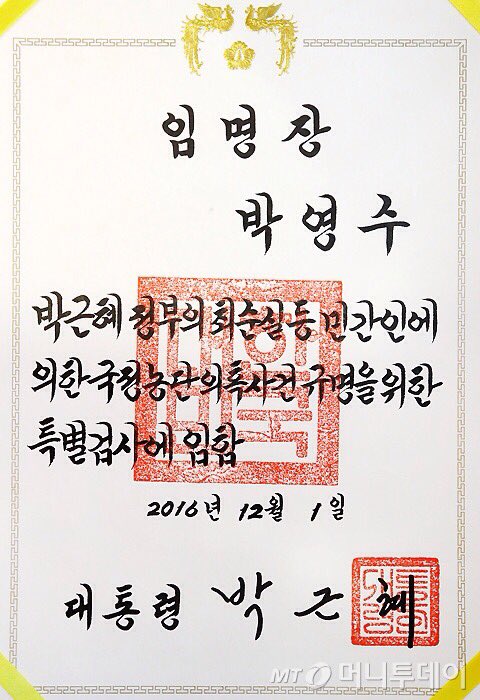 임명장
박영수
박근혜 정부의 최순실 등 민간인에
의한 국정농단 의혹사건 규명을 위한
특별검사에 임함
2016년 12월 1일
대통령 박근혜
MT 머니투데이